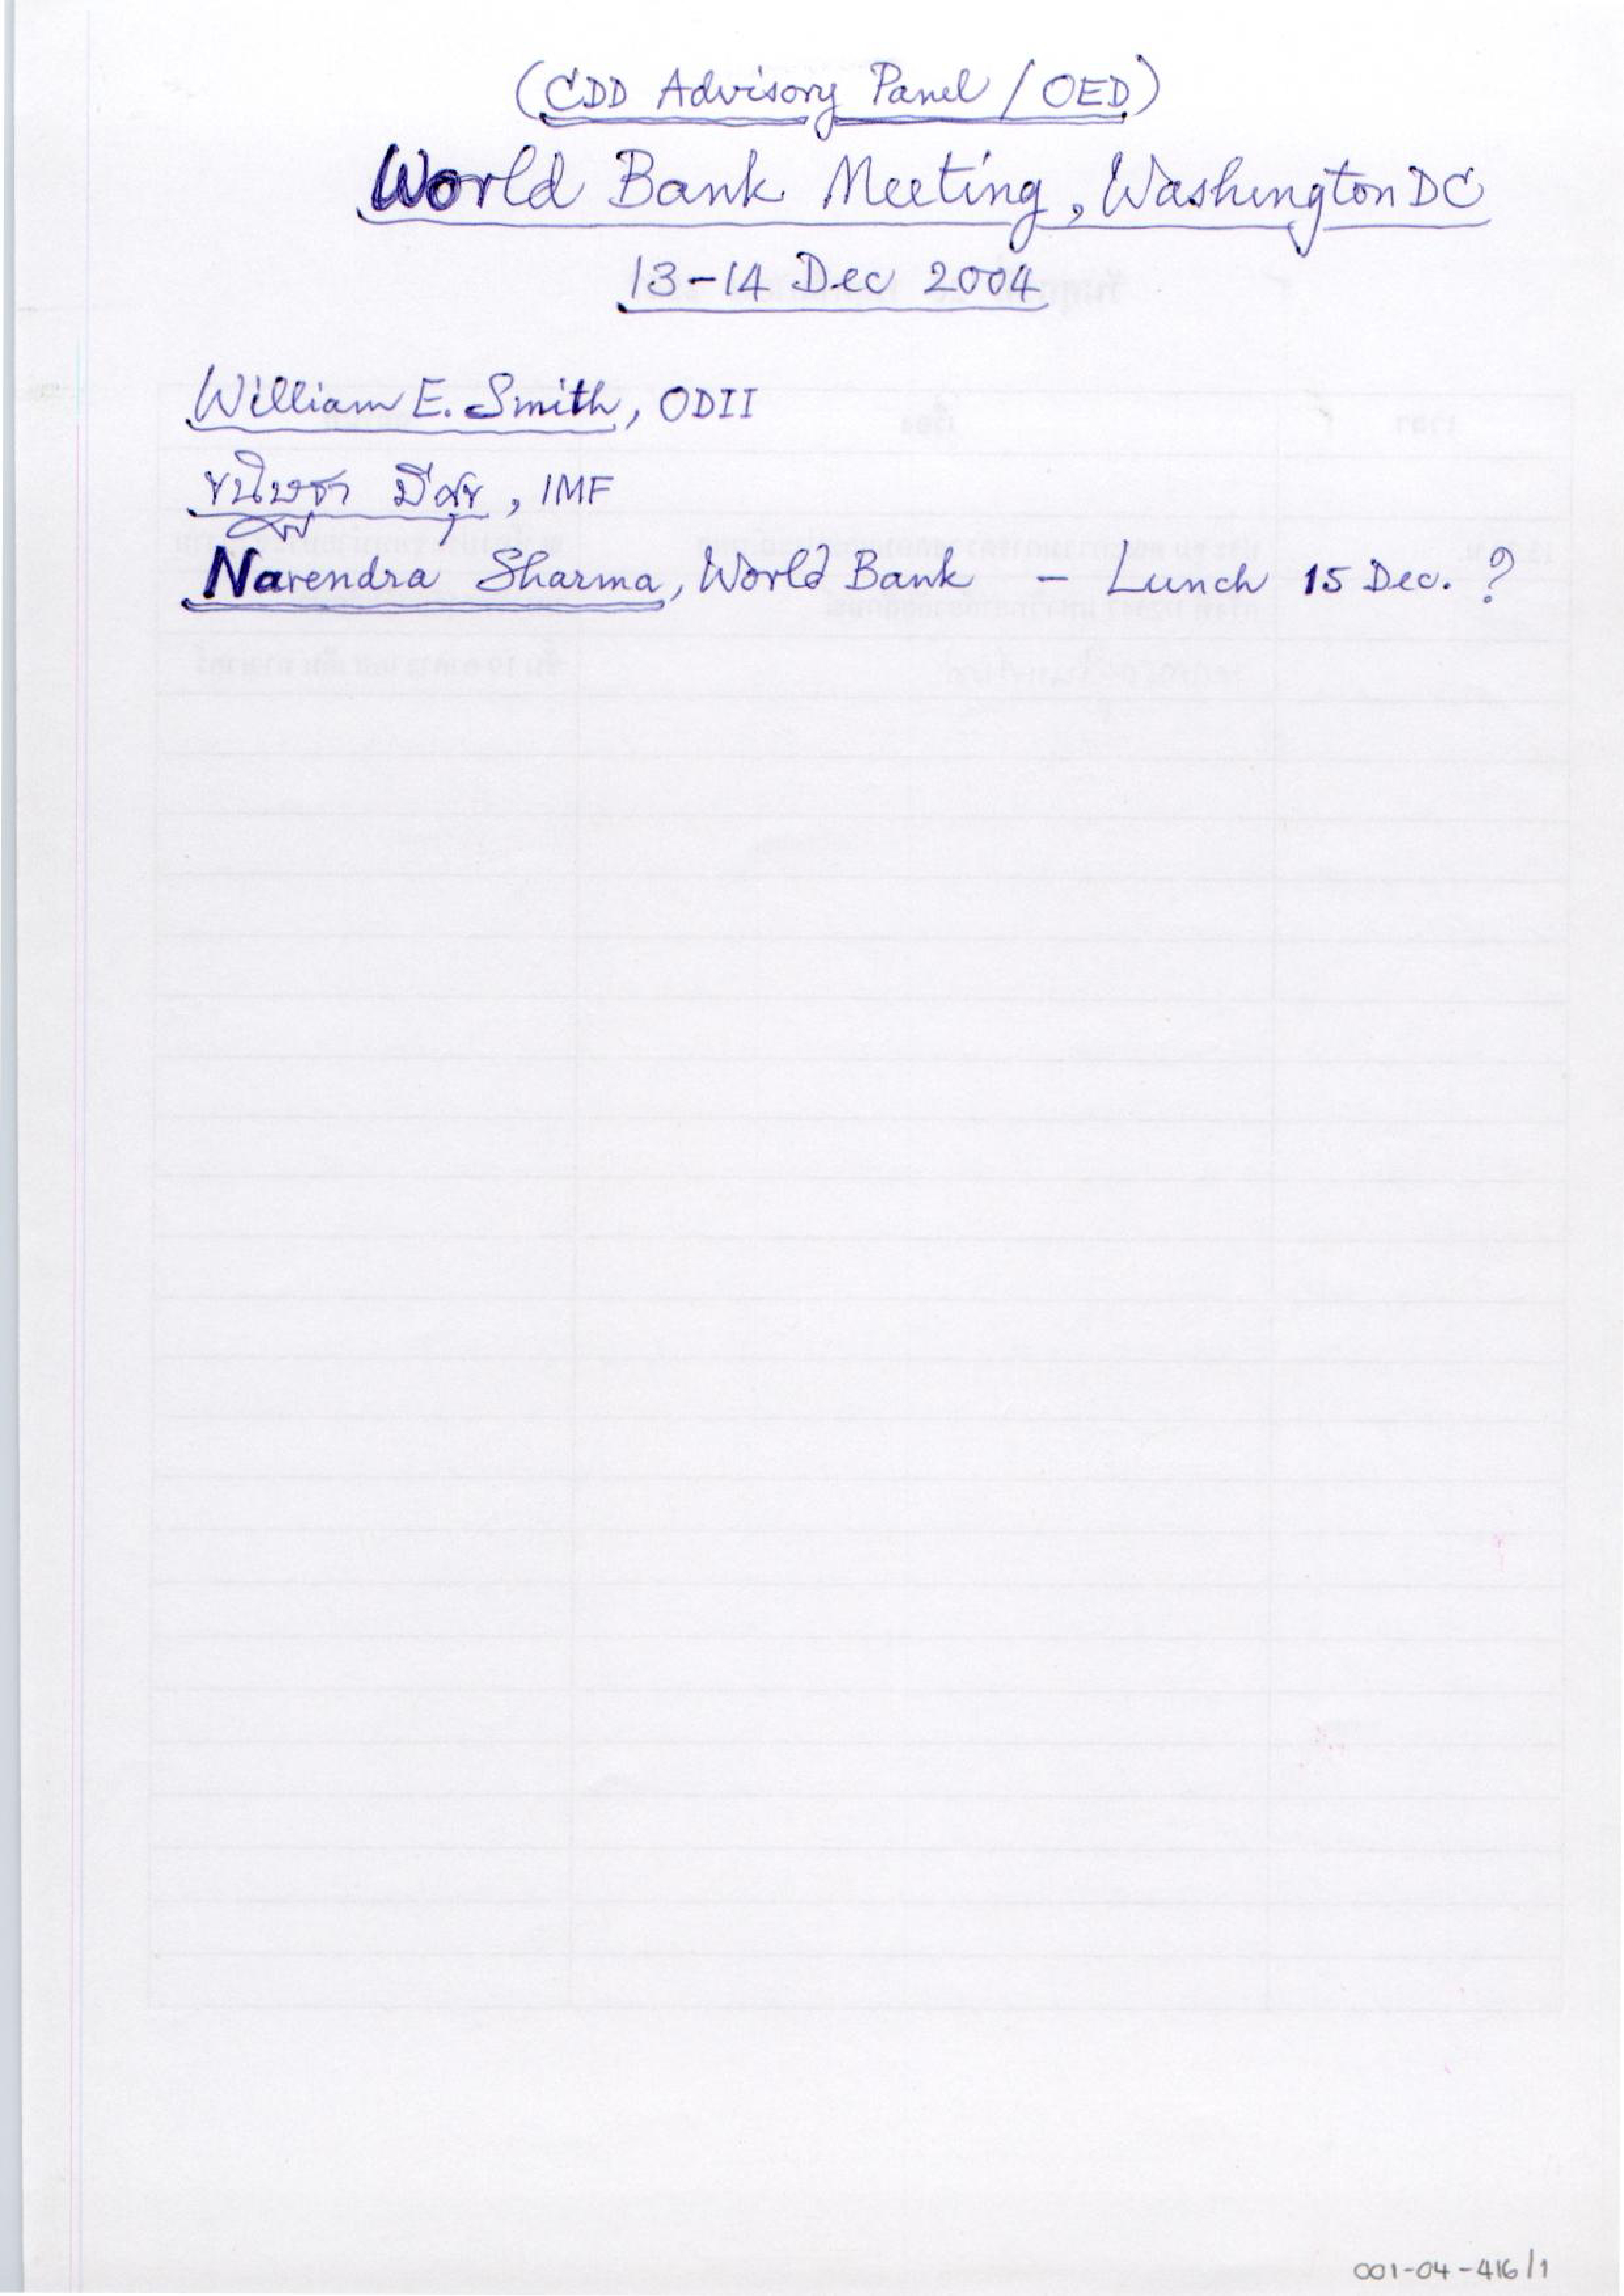 (CDD Advisory Panel / OED)
World Bank Meeting, Washington DC
13-14 Dec 2004
William E. Smith, ODII
ขนิษฐา มีสุข, IMF
Narendra Sharma, World Bank - Lunch 15 Dec. ?
001-04-416/1